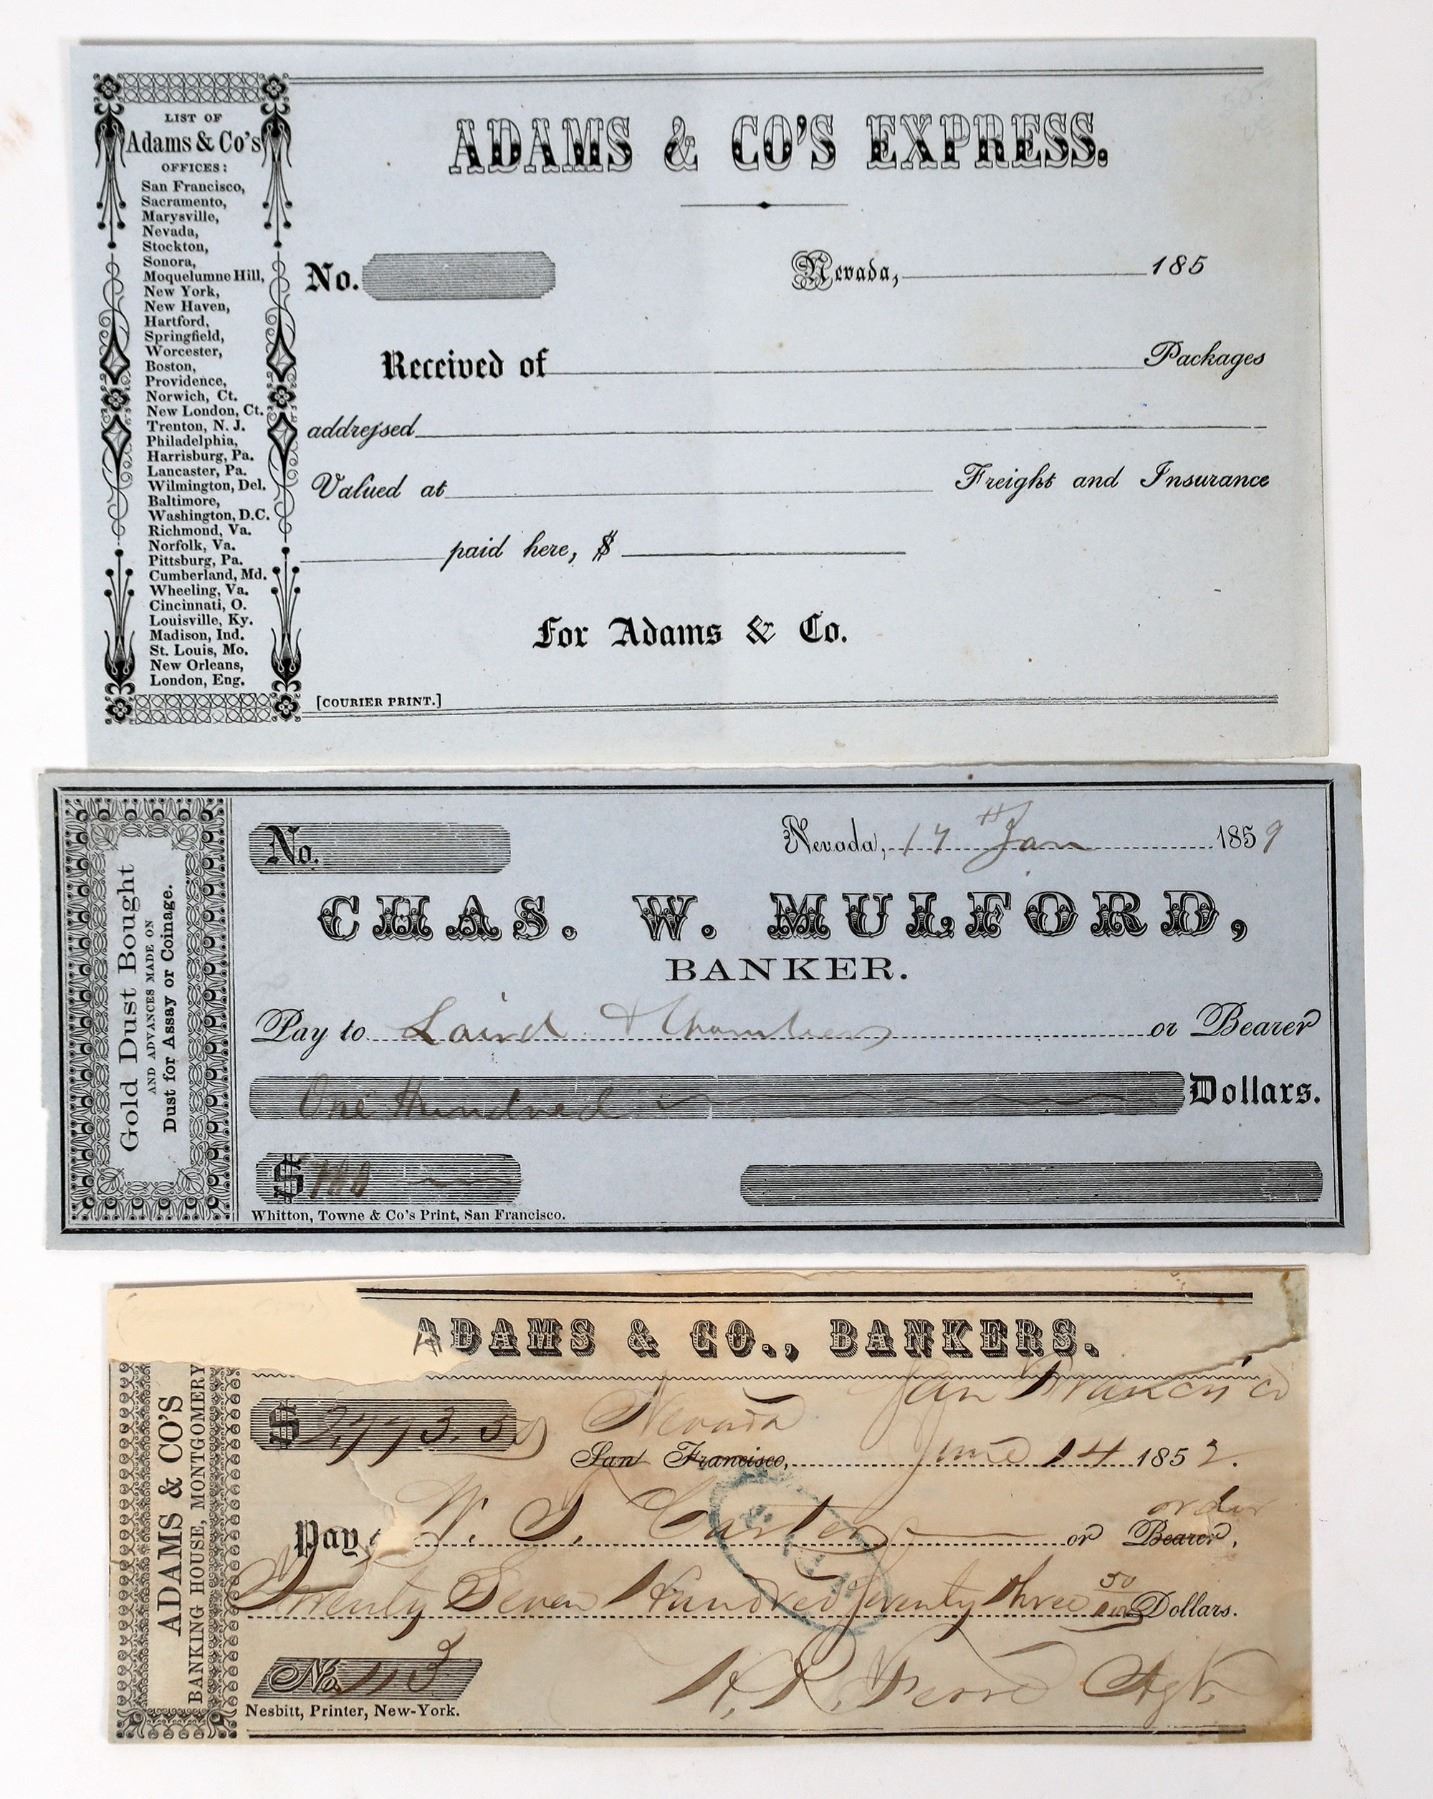 LIST OF
Adams & Co's
OFFICES:
San Francisco,
Sacramento,
Marysville,
Nevada,
Stockton,
Sonora,
Moquelumne Hill,
New York,
New Haven,
Hartford,
Springfield,
Worcester,
Boston,
Providence,
Norwich, Ct.
New London, Ct.
Trenton, N. J.
Philadelphia,
Harrisburg, Pa.
Lancaster, Pa.
Wilmington, Del.
Baltimore,
Washington, D.C.
Richmond, Va.
Norfolk, Va.
Pittsburg, Pa.
Cumberland, Md.
Wheeling, Va.
Cincinnati, O.
Louisville, Ky.
Madison, Ind.
St. Louis, Mo.
New Orleans,
London, Eng.
ADAMS & CO'S EXPRESS.
No. Nevada, 185
Received of Packages
addressed
Valued at Freight and Insurance
paid here, $
For Adams & Co.
[COURIER PRINT.]
Gold Dust Bought
AND ADVANCES MADE ON
Dust for Assay or Coinage.
No. Nevada, 17th Jan 1859
CHAS. W. MULFORD,
BANKER.
Pay to Laird & Chambers or Bearer
One Hundred Dollars.
$ 100
Whitton, Towne & Co's Print, San Francisco.
ADAMS & CO'S
BANKING HOUSE, MONTGOMERY
ADAMS & CO., BANKERS.
San Francisco
$ 2,773.50 Nevada
San Francisco, June 14 1852.
order
Pay W. S. or Bearer,
Twenty Seven Hundred Seventy three 50/100 Dollars.
No. 113
Agt.
Nesbitt, Printer, New-York.